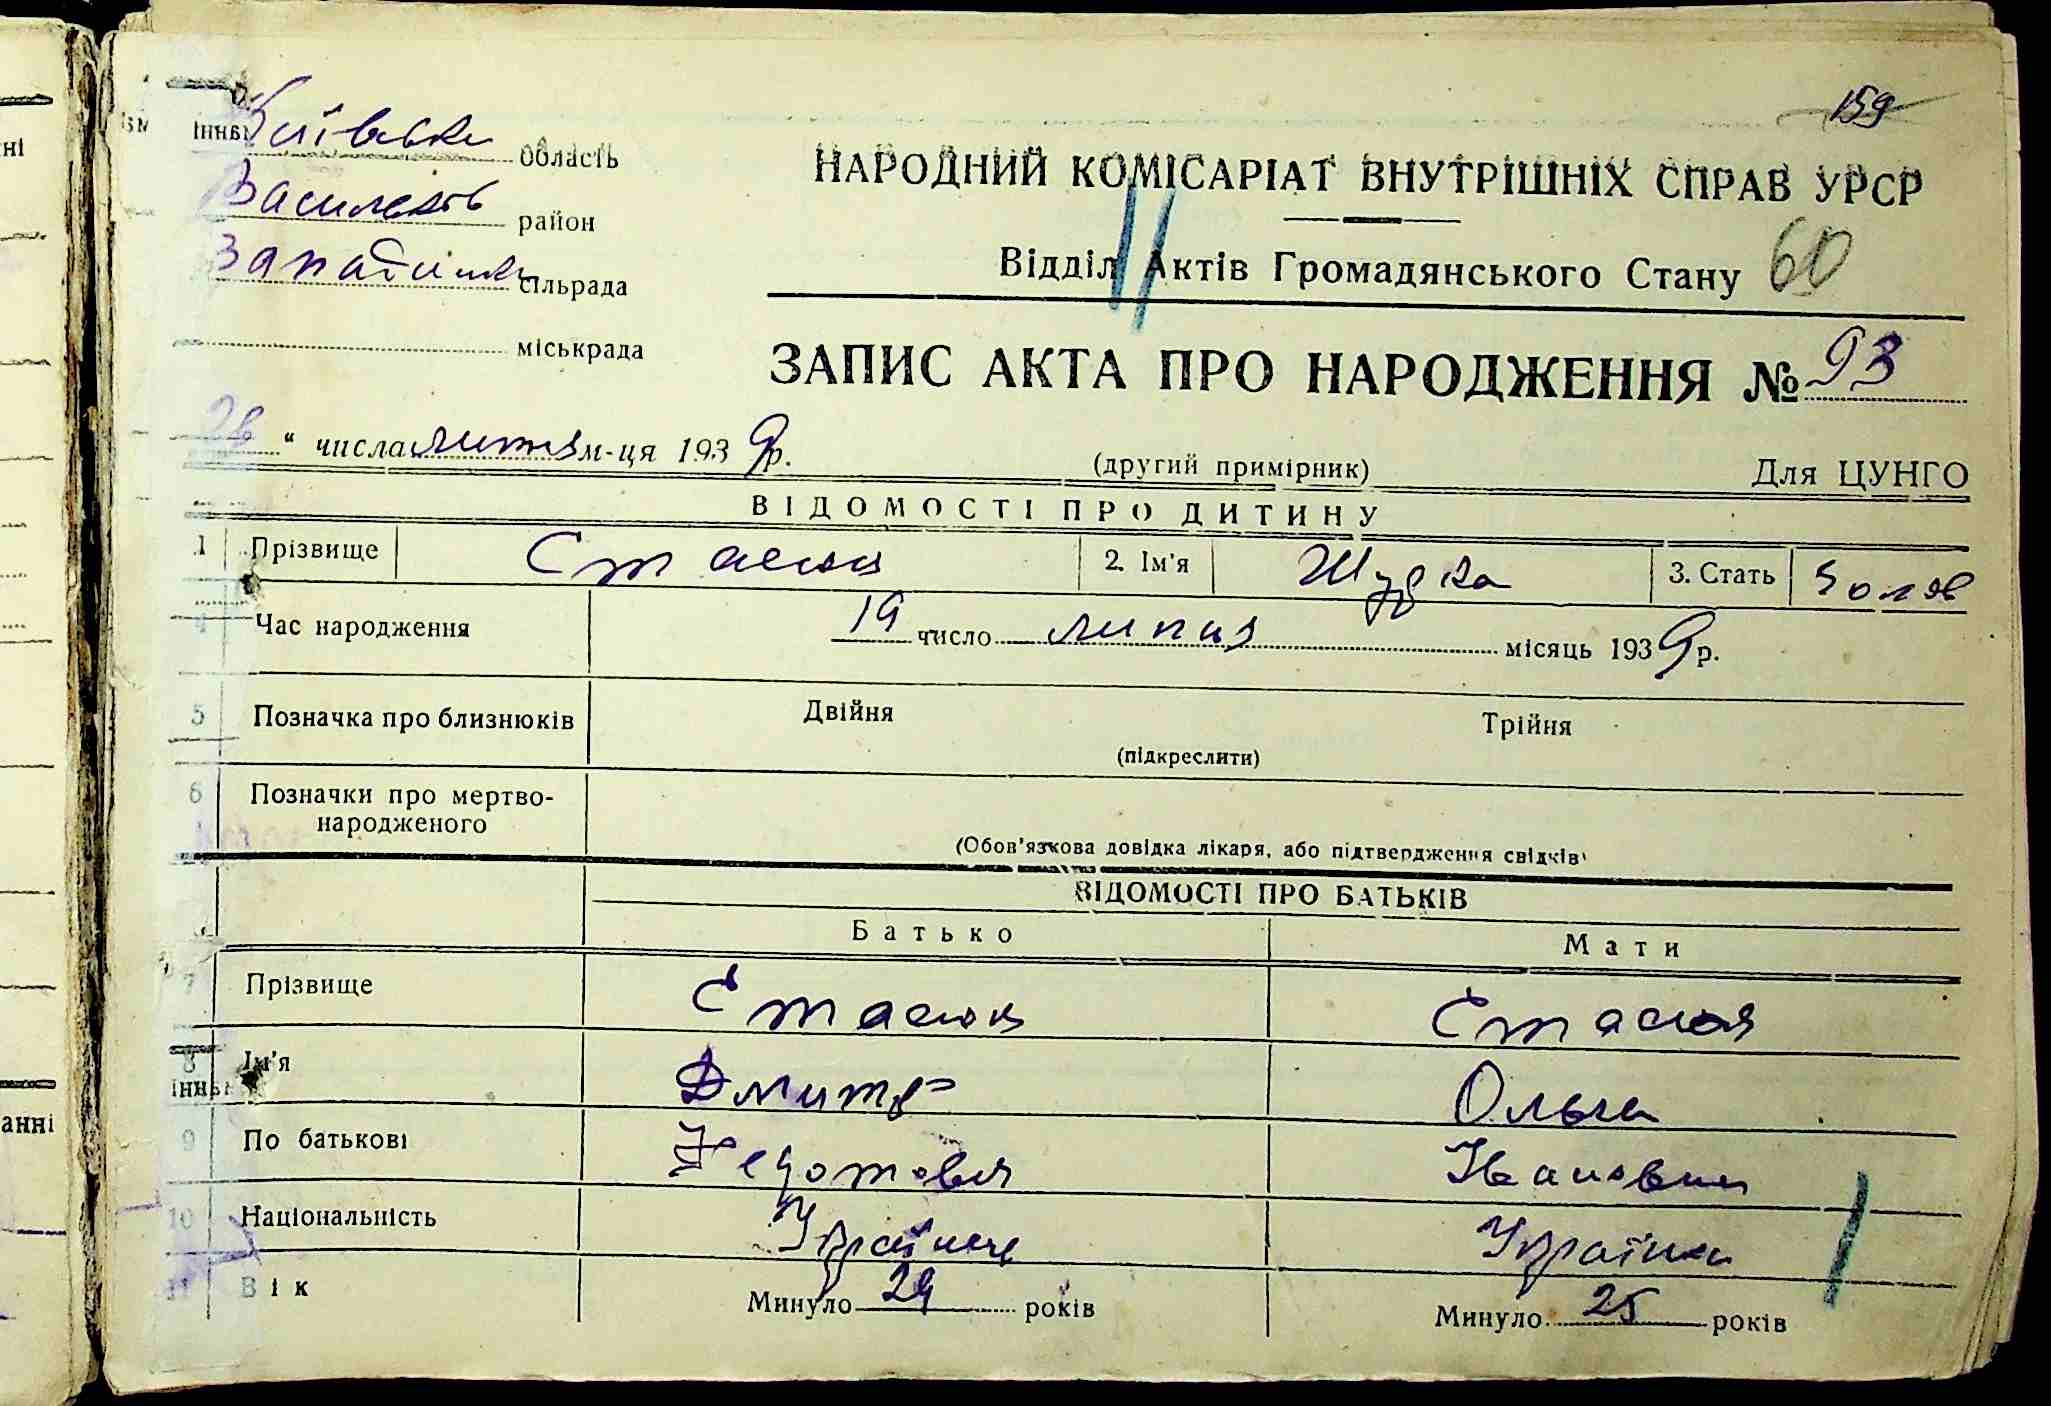 159
Київська область
НАРОДНИЙ КОМІСАРІАТ ВНУТРІШНІХ СПРАВ УРСР
Васильків район
Відділ Актів Громадянського Стану 60
сільрада
міськрада
ЗАПИС АКТА ПРО НАРОДЖЕННЯ № 93
28 " числа липня м-ця 1939 р.
(другий примірник) Для ЦУНГО
ВІДОМОСТІ ПРО ДИТИНУ
1 Прізвище Стасюк 2. Ім'я Шурка 3. Стать чолов
4 Час народження 19 число липня місяць 1939 р.
5 Позначка про близнюків Двійня Трійня
(підкреслити)
6 Позначки про мертво-
народженого
(Обов'язкова довідка лікаря, або підтвердження свідків)
ВІДОМОСТІ ПРО БАТЬКІВ
Батько Мати
7 Прізвище Стасюк Стасюк
8 Ім'я Дмитр Ольга
9 По батькові Федотович Івановна
10 Національність Українец Українка
11 Вік Минуло 29 років Минуло 25 років
ні
анні